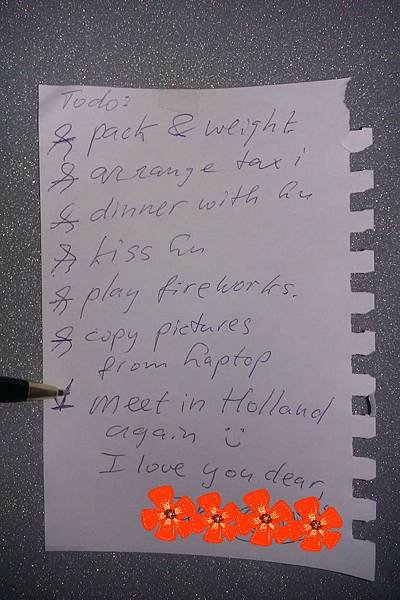 Todo:
pack & weight
arrange taxi
dinner with hu
kiss hu
play fireworks.
copy pictures
from laptop
meet in Holland
again :)
I love you dear,